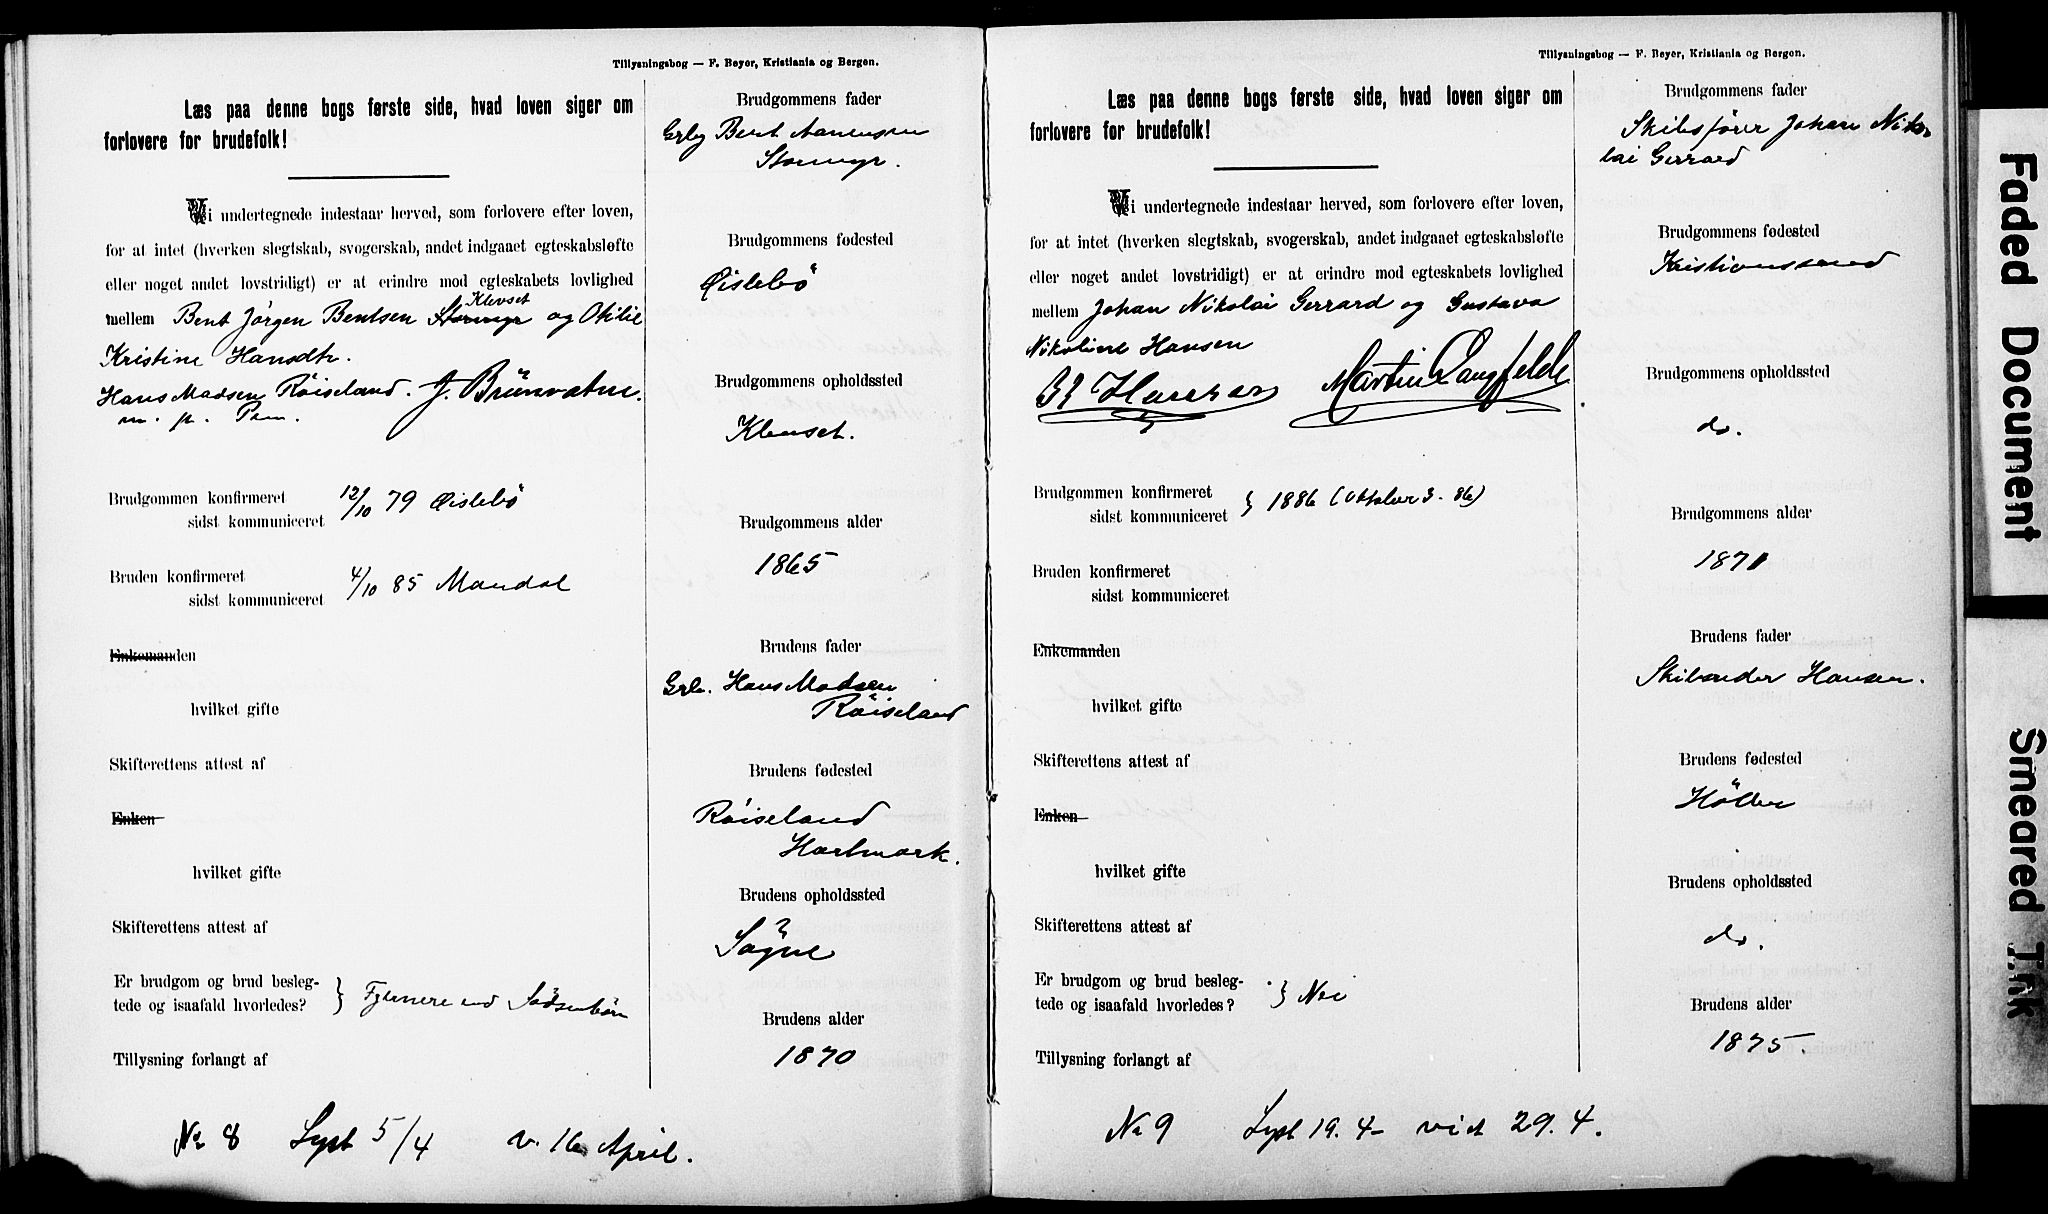 Tillysningsbog — F. Beyer, Kristiania og Bergen.
Læs paa denne bogs første side, hvad loven siger om
forlovere for brudefolk!
Vi undertegnede indestaar herved, som forlovere efter loven,
for at intet (hverken slegtskab, svogerskab, andet indgaaet egteskabsløfte
eller noget andet lovstridigt) er at erindre mod egteskabets lovlighed
Klevset
mellem Bent Jörgen Bentsen Stormyr og Otilie
Kristine Hansdtr.
Hans Madsen Röiseland. J. Brünvatne.
m. p. Pen.
Brudgommen konfirmeret
sidst kommuniceret
12/10 79 Øislebö
Bruden konfirmeret
sidst kommuniceret
4/10 85 Mandal
Enkemanden
hvilket gifte
Skifterettens attest af
Enken
hvilket gifte
Skifterettens attest af
Er brudgom og brud besleg-
tede og isaafald hvorledes? } Fjernere end Södsenbörn
Tillysning forlangt af
No 8 Lyst 5/4 v. 16 April.
Brudgommens fader
Grbg Bent Aanensen
Stormyr.
Brudgommens fødested
Øislebö
Brudgommens opholdssted
Klevset.
Brudgommens alder
1865
Brudens fader
Grb. Hans Madsen
Röiseland
Brudens fødested
Röiseland
Hartmark.
Brudens opholdssted
Sögne
Brudens alder
1870
Tillysningsbog — F. Beyer, Kristiania og Bergen.
Læs paa denne bogs første side, hvad loven siger om
forlovere for brudefolk!
Vi undertegnede indestaar herved, som forlovere efter loven,
for at intet (hverken slegtskab, svogerskab, andet indgaaet egteskabsløfte
eller noget andet lovstridigt) er at erindre mod egteskabets lovlighed
mellem Johan Nikolai Gerrard og Gustava
Nikoline Hansen
Hansen Martin Langfeldt
Brudgommen konfirmeret
sidst kommuniceret
} 1886 (Oktober 3. 86)
Bruden konfirmeret
sidst kommuniceret
Enkemanden
hvilket gifte
Skifterettens attest af
Enken
hvilket gifte
Skifterettens attest af
Er brudgom og brud besleg-
tede og isaafald hvorledes? } Nei
Tillysning forlangt af
No 9 Lyst 19. 4 - viet 29. 4.
Brudgommens fader
Skibsfører Johan Niko-
lai Gerrard
Brudgommens fødested
Kristianssand
Brudgommens opholdssted
do.
Brudgommens alder
1871
Brudens fader
Skibreder Hansen.
Brudens fødested
Höllen
Brudens opholdssted
do.
Brudens alder
1875.
Faded Document
Smeared Ink